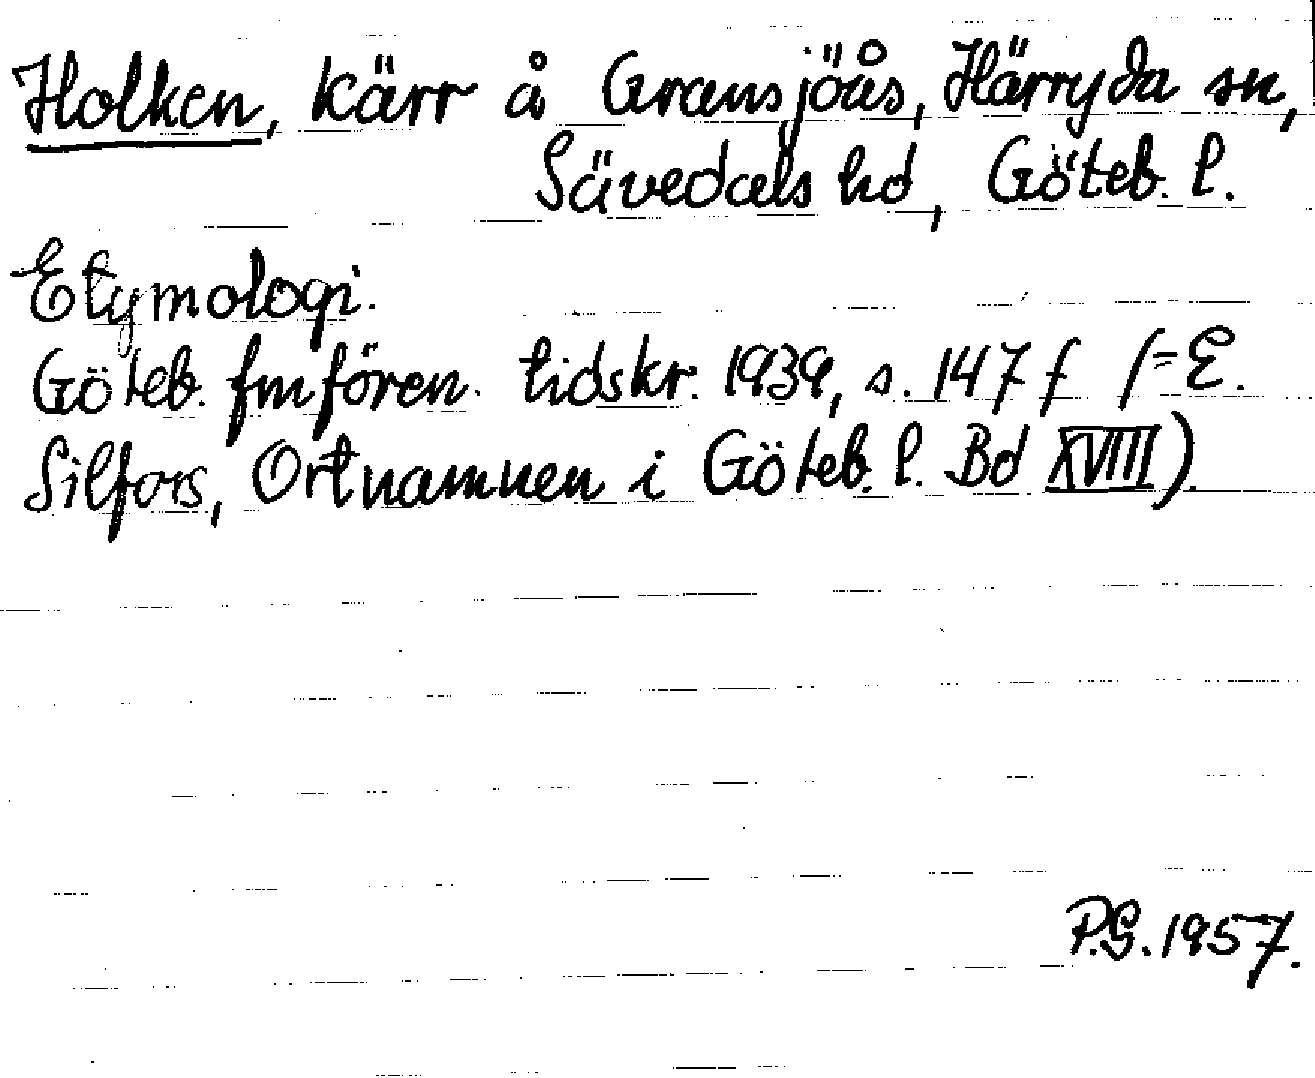 Holken, kärr å Gransjöås, Härryda sn,
Sävedals hd, Göteb. l.
Etymologi.
Göteb. fmfören. tidskr. 1939, s. 147 f (= E.
Silfors, Ortnamnen i Göteb. l. Bd XVIII).
P.G. 1957.